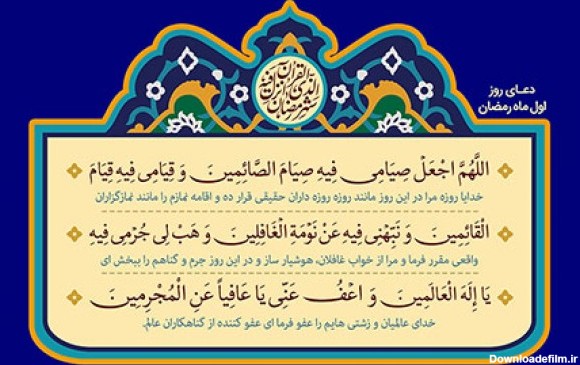 شهر رمضان
الذی انزل فیه
القرآن
دعـای روز
اول ماه رمضان
اللَّهُمَّ اجْعَلْ صِيَامِی فِيهِ صِيَامَ الصَّائِمِينَ وَ قِيَامِی فِيهِ قِيَامَ
خدایا روزه مرا در این روز مانند روزه روزه داران حقیقی قرار ده و اقامه نمازم را مانند نمازگزاران
الْقَائِمِينَ وَ نَبِّهْنِی فِيهِ عَنْ نَوْمَةِ الْغَافِلِينَ وَ هَبْ لِی جُرْمِی فِيهِ
واقعی مقرر فرما و مرا از خواب غافلان، هوشیار ساز و در این روز جرم و گناهم را ببخش ای
يَا إِلَهَ الْعَالَمِينَ وَ اعْفُ عَنِّی يَا عَافِياً عَنِ الْمُجْرِمِينَ
خدای عالمیان و زشتی هایم را عفو فرما ای عفو کننده از گناهکاران عالم.
Downloadefilm.ir